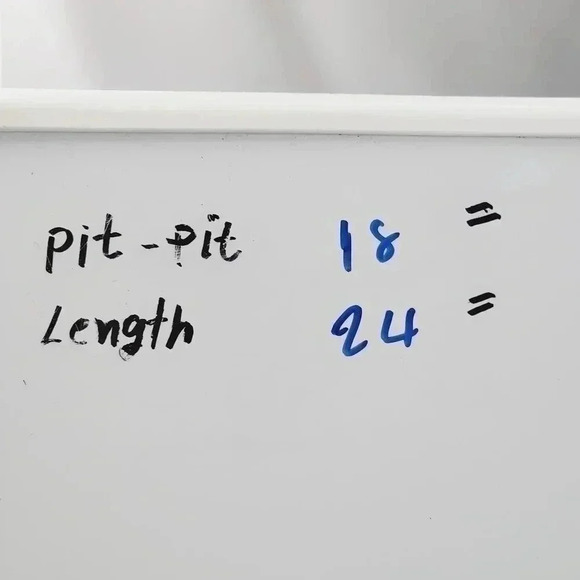 pit-pit 18 "
Length 24 "